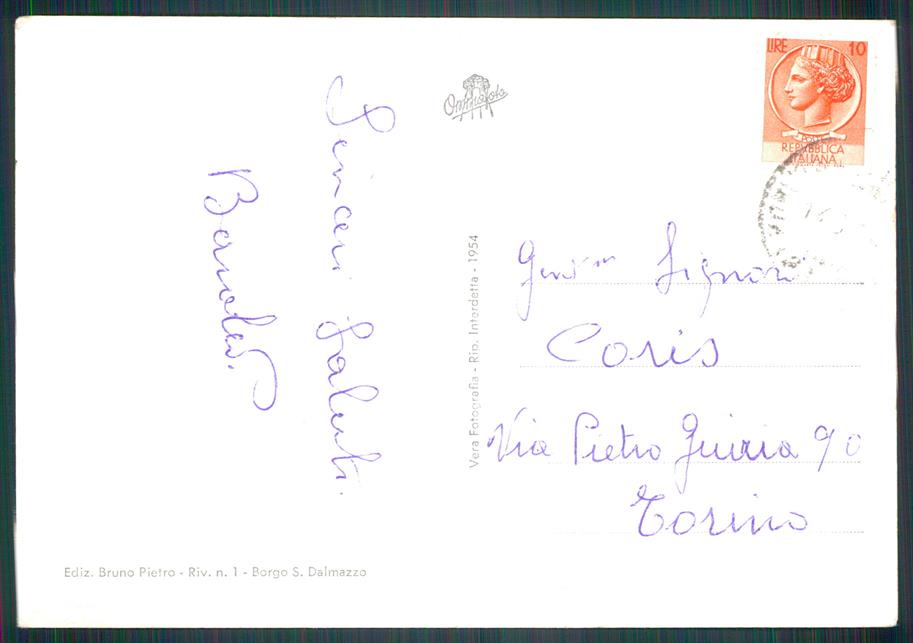 Sinceri saluti.
Omniafoto
LIRE 10
POSTE
REPUBBLICA
ITALIANA
Vera Fotografia - Rip. Interdetta - 1954
Signori
Coris
Via Pietro Giuria 90
Torino
Ediz. Bruno Pietro - Riv. n. 1 - Borgo S. Dalmazzo